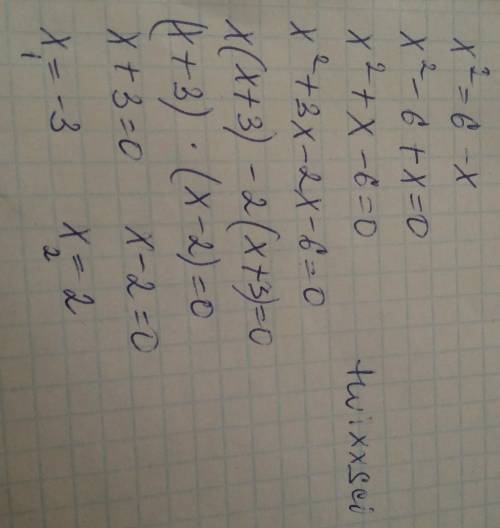 x² = 6 - x
x² - 6 + x = 0
x² + x - 6 = 0
x² + 3x - 2x - 6 = 0
x(x+3) - 2(x+3) = 0
(x+3) · (x-2) = 0
x + 3 = 0 x - 2 = 0
x₁ = -3 x₂ = 2